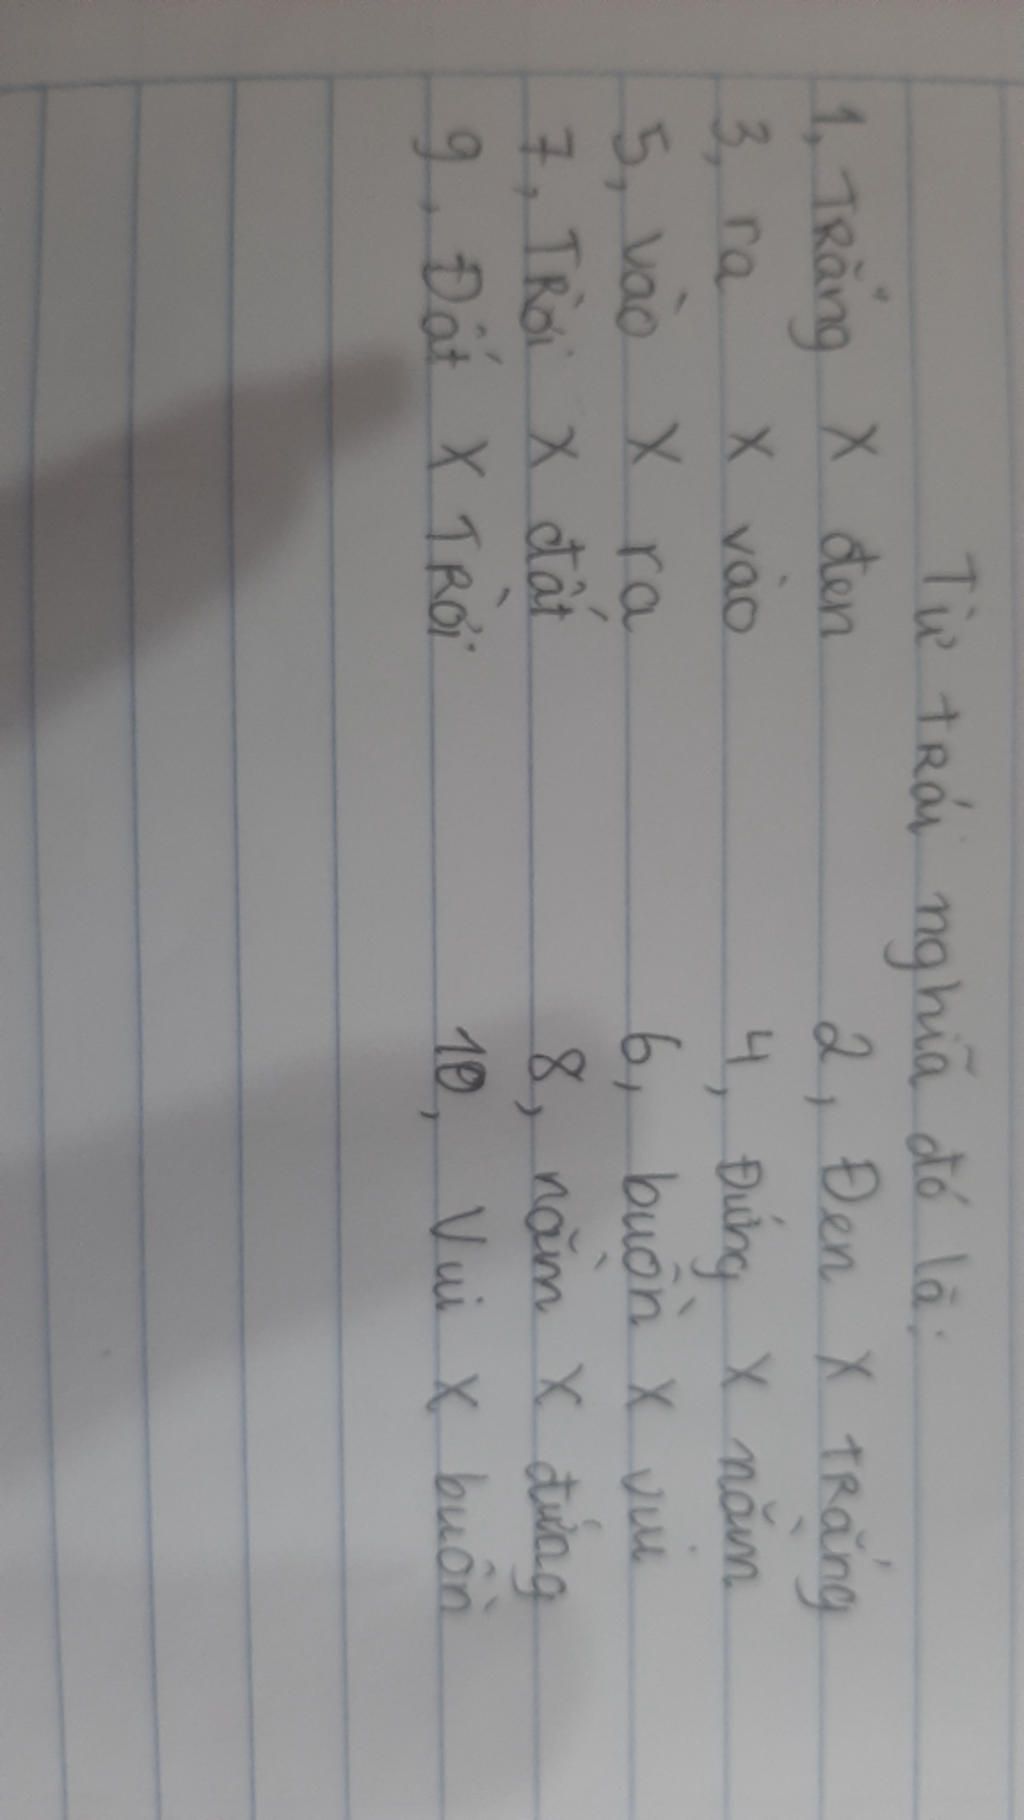 Từ TRái nghĩa đó là:
1, TRắng X đen 2, Đen X TRắng
3, ra X vào 4, Đứng X nằm
5, vào X ra 6, buồn X vui
7, TRời X đất 8, nằm X đứng
9, Đất X TRời 10, Vui X buồn